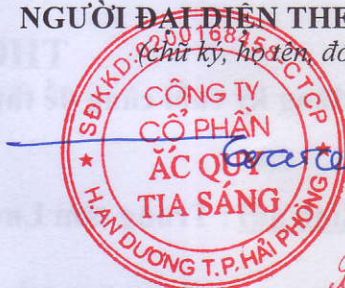 NGƯỜI ĐẠI DIỆN THE
(chữ ký, họ tên, đó
SĐKKD: 0200168458 - CTCP
CÔNG TY
CỔ PHẦN
ẮC QUY
TIA SÁNG
H. AN DƯƠNG T.P. HẢI PHÒNG